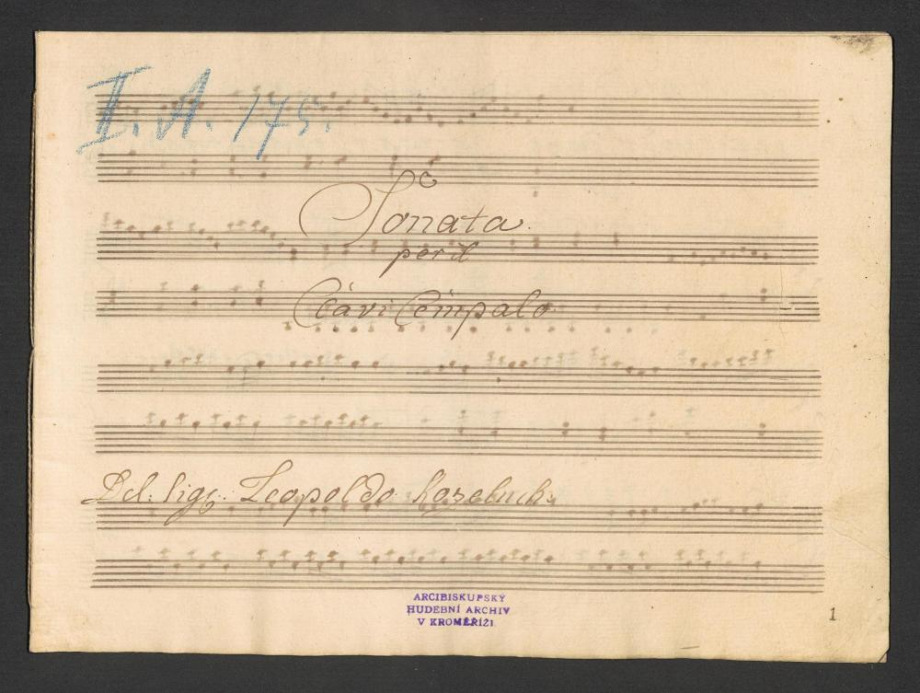 II. A. 175.
Sonata
per il
Clavi Cempalo
Del: Sigr: Leopoldo Kozeluch
ARCIBISKUPSKÝ
HUDEBNÍ ARCHIV
V KROMĚŘÍŽI
1